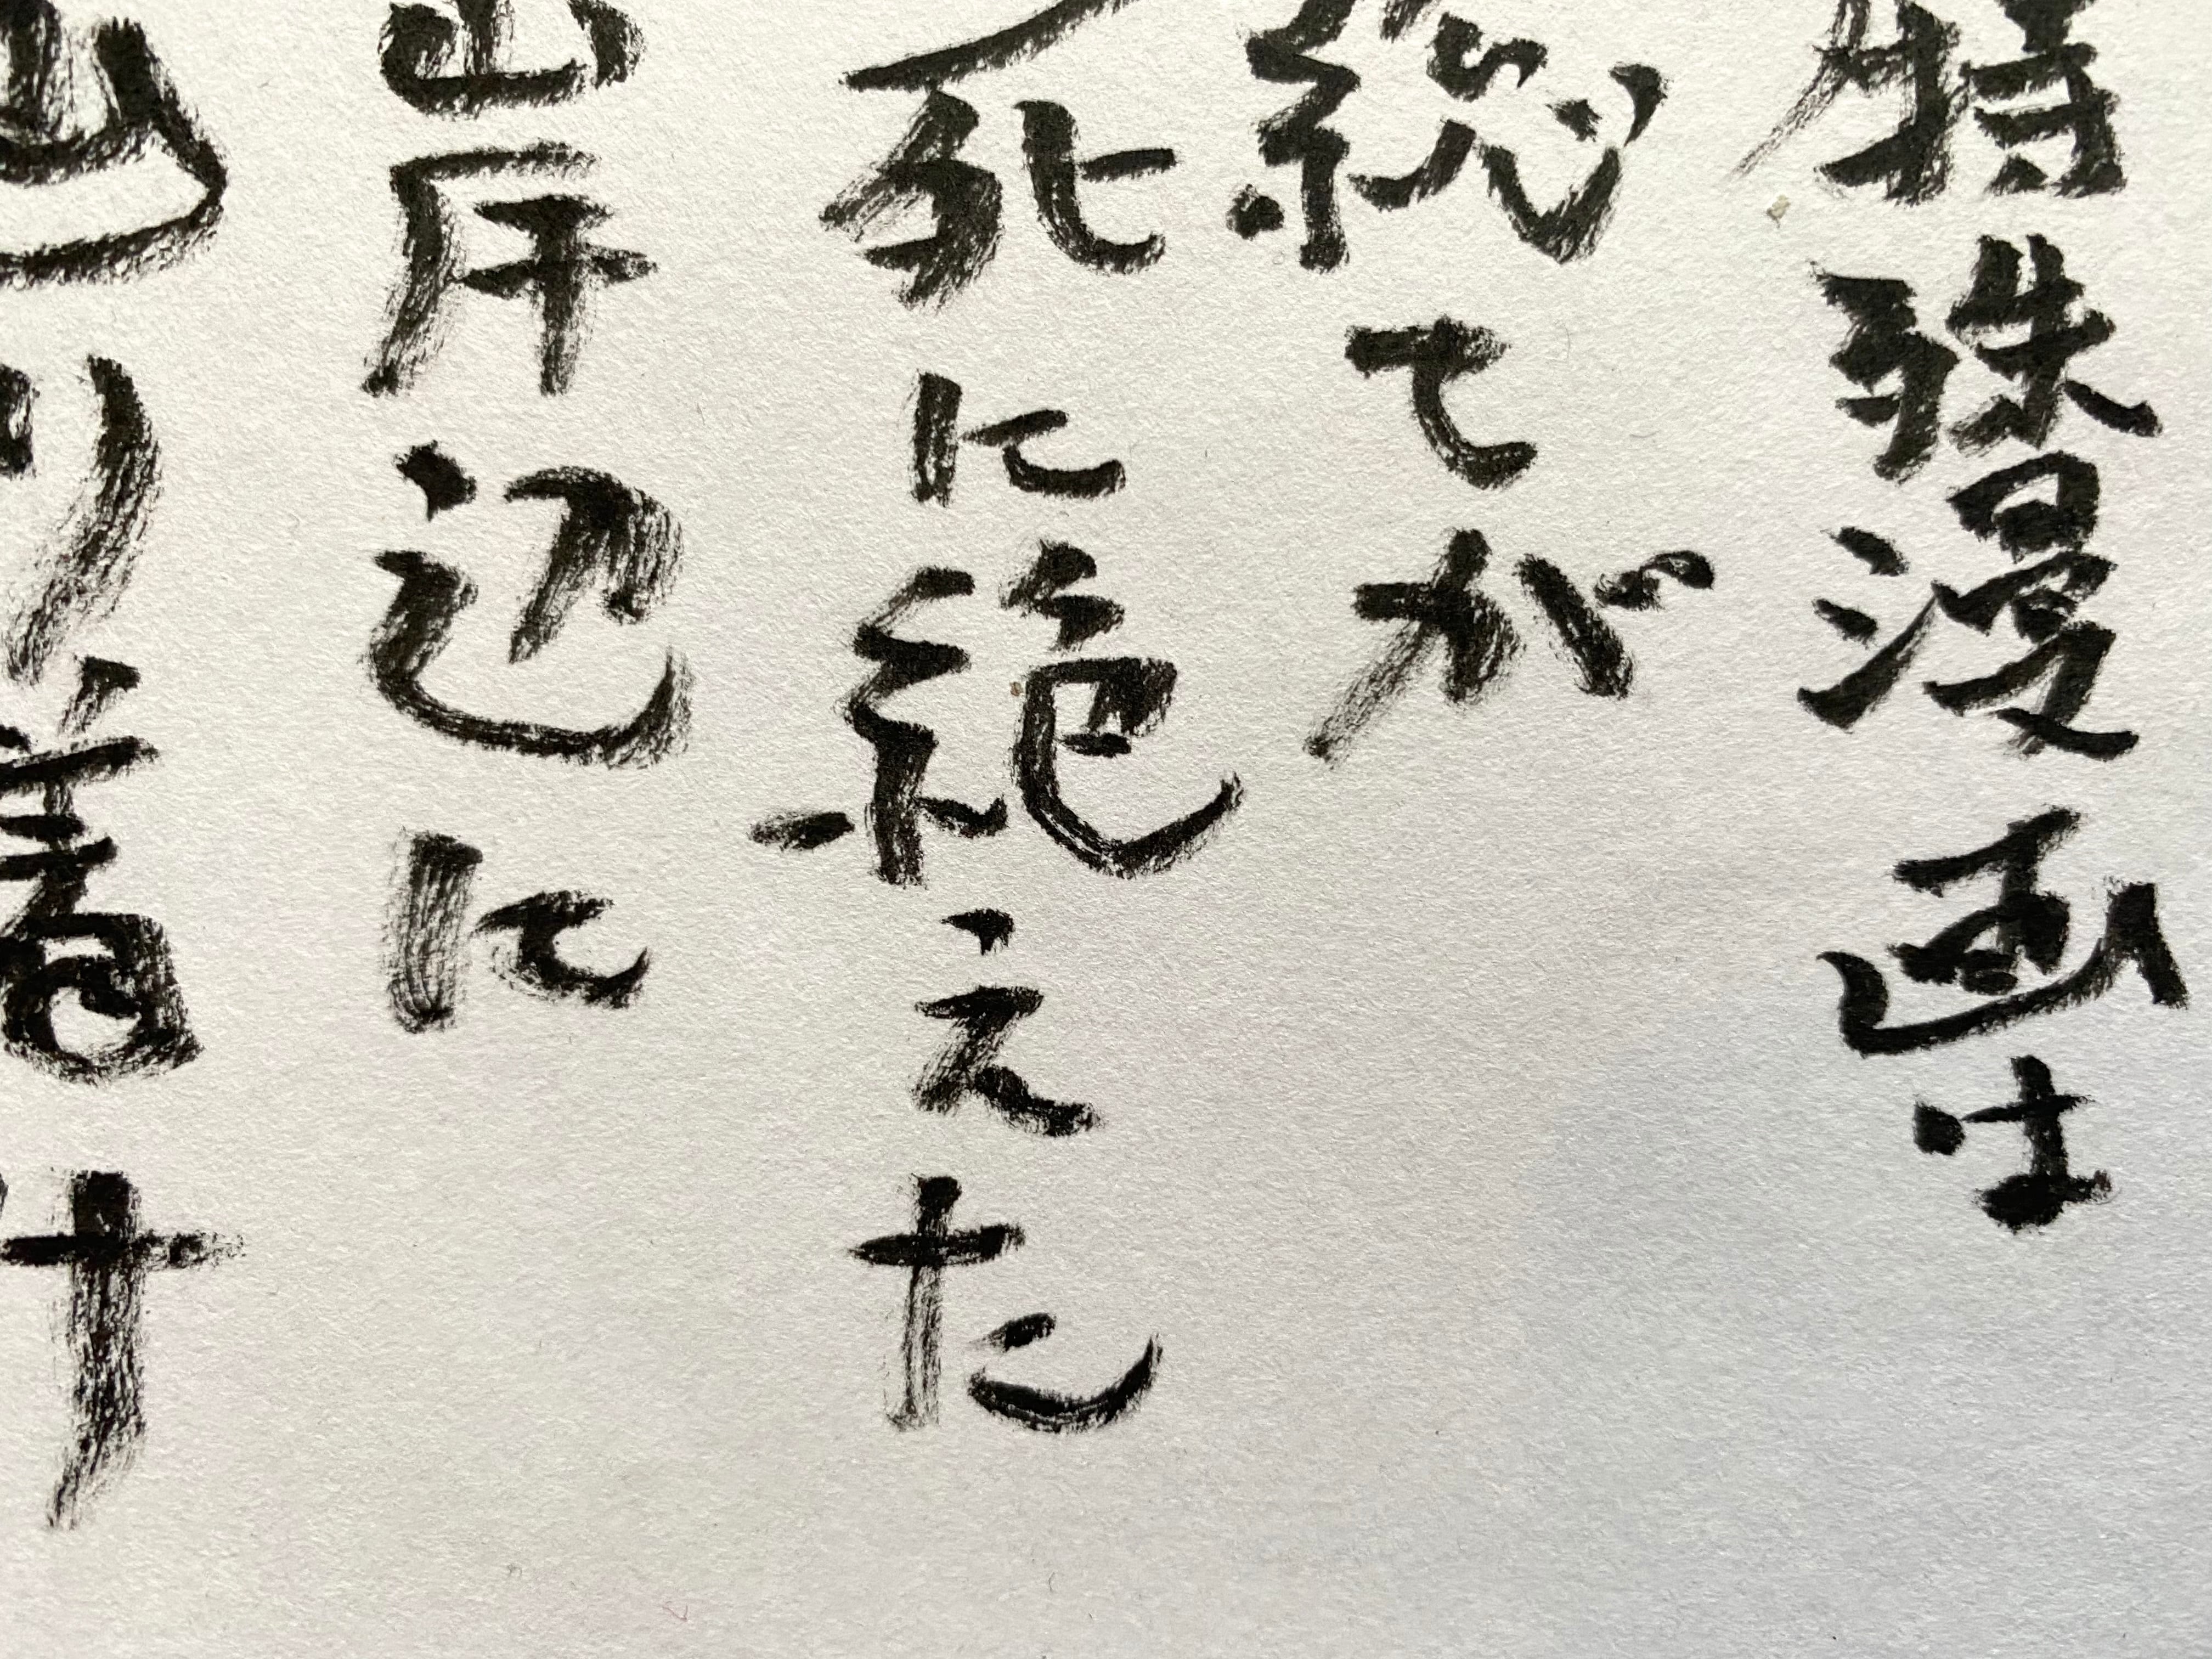 特殊漫画は
総てが
死に絶えた
岸辺に
り着け